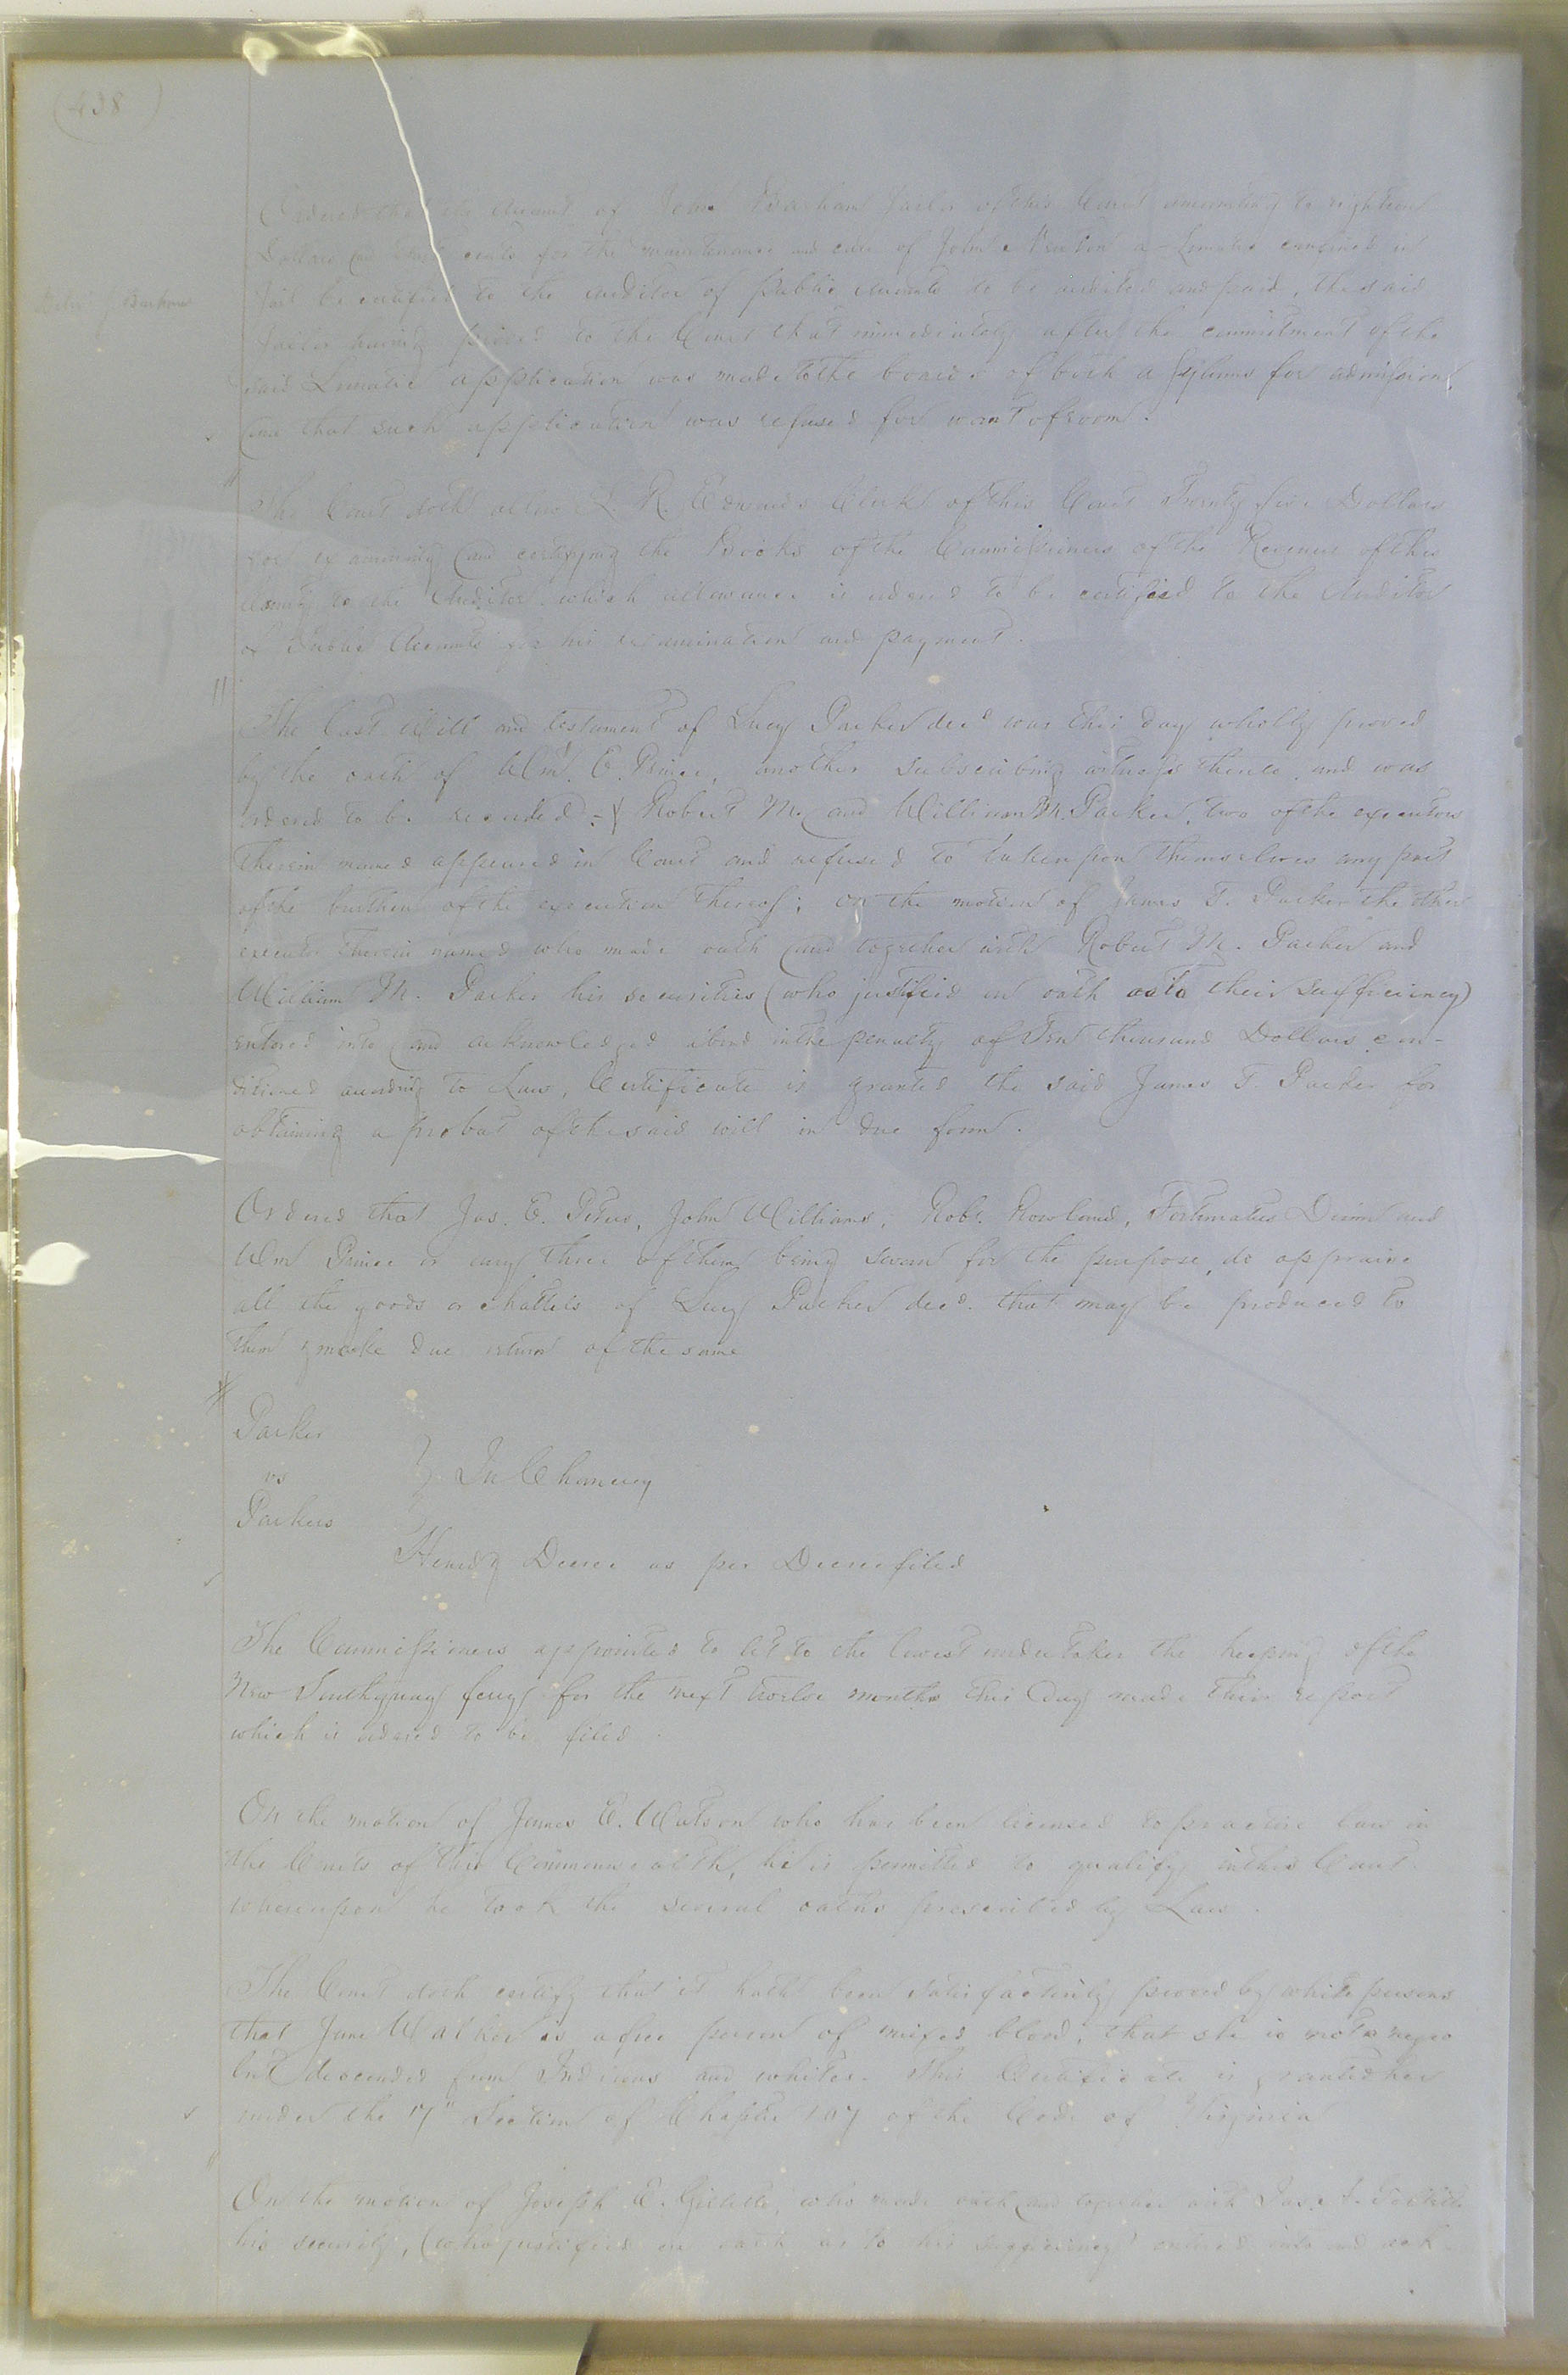 (438)
Ordered that the Account of John Barham Jailor of this Court amounting to eighteen
Dollars and cents for the maintenance and care of John a Lunatic confined in
Jail be certified to the auditor of public accounts to be audited and paid, the said
Jailor having proved to the Court that immediately after the commitment of the
said Lunatic application was made to the boards of both asylums for admission,
and that such application was refused for want of room.
Deliv'd Barham
The Court doth allow L. R. Edwards Clerk of this Court Twenty five Dollars
for examining and certifying the Books of the Commissioners of the Revenue of this
County to the Auditor which allowance is ordered to be certified to the Auditor
of Public Accounts for his examination and payment.
The last Will and testament of Lucy Parker decd was this day wholly proved
by the oath of Wm. E. Prince, another subscribing witness thereto, and was
ordered to be recorded. Robert M. and William M. Parker, two of the executors
therein named appeared in Court and refused to take upon themselves any part
of the burthen of the execution thereof; on the motion of James T. Parker the other
executor therein named who made oath and together with Robert M. Parker and
William M. Parker his securities (who justified on oath as to their sufficiency)
entered into and acknowledged a bond in the penalty of Ten thousand Dollars con-
ditioned according to Law, Certificate is granted the said James T. Parker for
obtaining a probat of the said will in due form.
Ordered that Jas. E. John Williams, Robt. Rowland, Fortunatus and
Wm Prince or any three of them being sworn for the purpose, do appraise
all the goods or chattels of Lucy Parker decd. that may be produced to
them & make due return of the same
Parker
vs } In Chancery
Parkers
Decree as per Decree filed
The Commissioners appointed to let to the lowest undertaker the keeping of the
New Southquay ferry for the next twelve months this Day made their report
which is ordered to be filed.
On the motion of James E. Watson who has been licensed to practice law in
the Courts of this Commonwealth, he is permitted to qualify in this Court
whereupon he took the several oaths prescribed by Law.
The Court doth certify that it hath been satisfactorily proved by white persons
that Jane Walker is a free person of mixed blood, that she is not a negro
but descended from Indians and whites. This Certificate is granted her
under the 17" Section of Chapter 107 of the Code of Virginia
On the motion of Joseph E. Gillette, who made oath and together with
his security, (who justified on oath as to his sufficiency) entered into and ack-